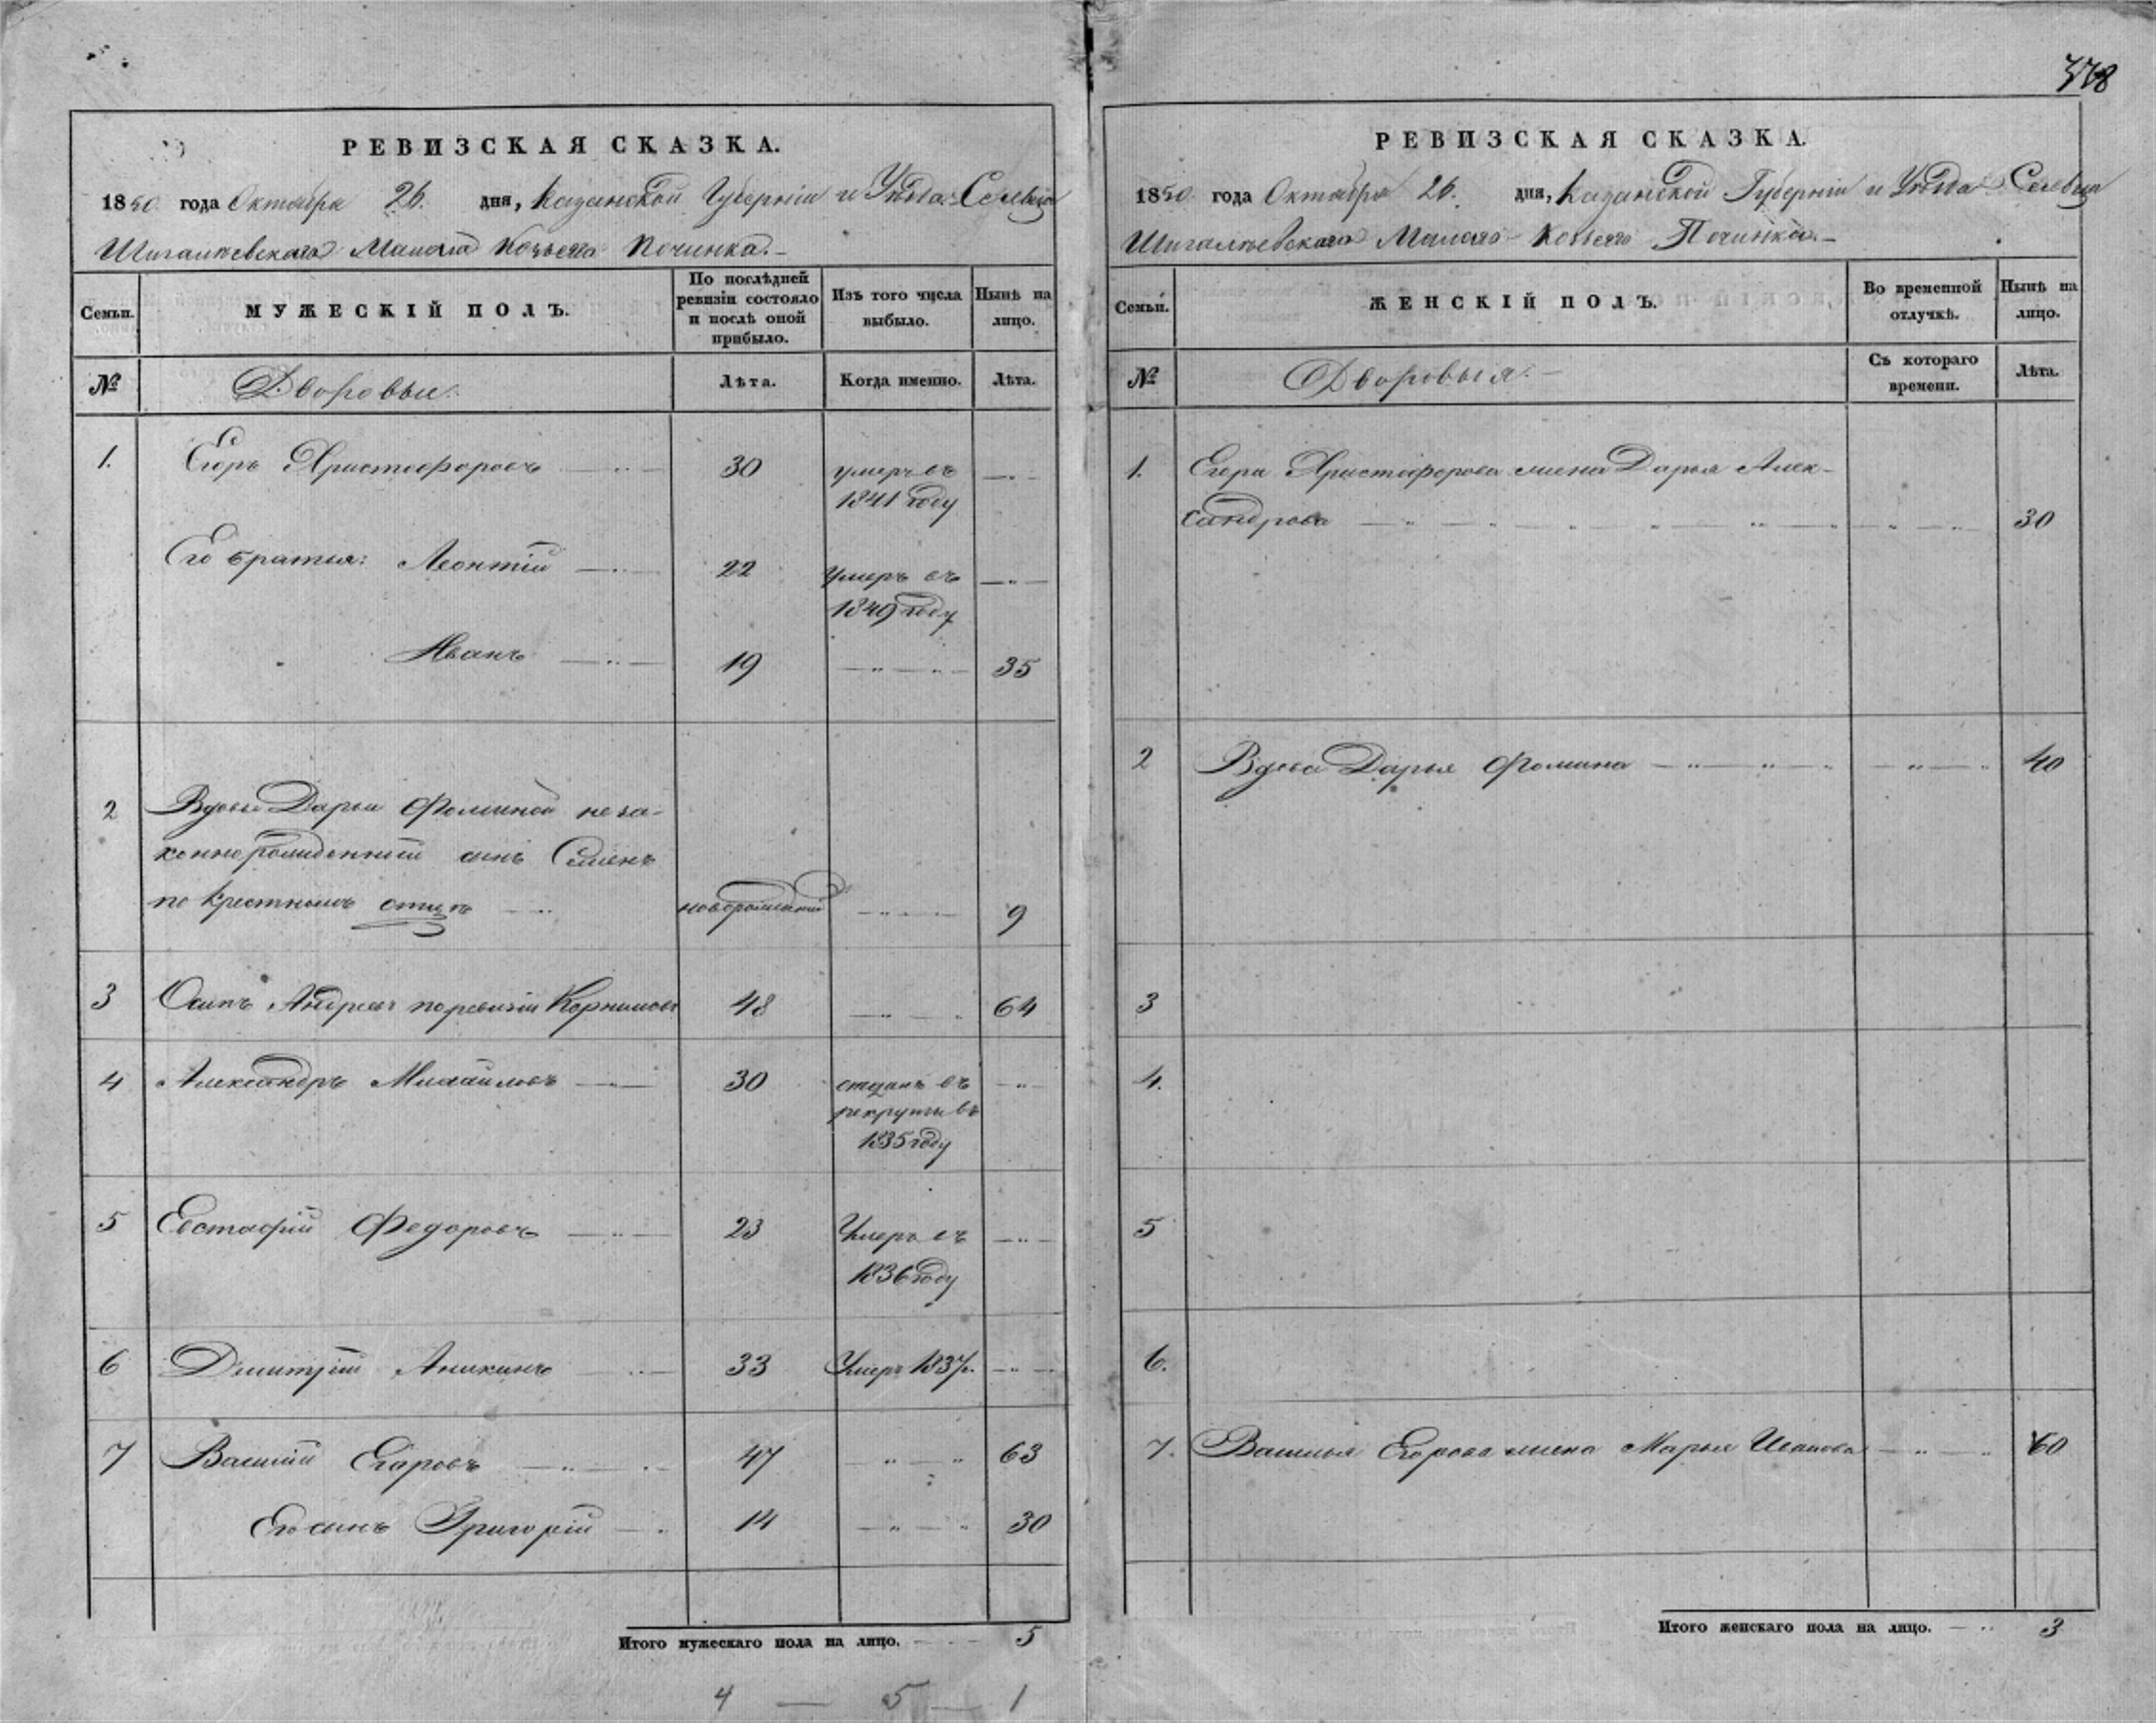 378
РЕВИЗСКАЯ СКАЗКА.
1850 года Октября 26. дня, Казанской Губерніи и Уѣзда Сельца
Шигалѣевскаго Малаго Козьяго Починка.
Семьи.
МУЖЕСКІЙ ПОЛЪ.
По послѣдней ревизіи состояло и послѣ оной прибыло.
Изъ того числа выбыло.
Нынѣ на лицо.
№
Дворовыи.
Лѣта.
Когда именно.
Лѣта.
1. Егоръ Христофоровъ 30 умеръ въ
1841 году
Его братья: Леонтій 22 Умеръ въ
1849 году
Иванъ 19 35
2 Вдовы Дарьи Фоминой неза-
коннорожденный сынъ Семенъ
по крестномъ отцѣ новорожденный 9
3 Осипъ Андреевъ по ревизіи Корниловъ 48 64
4 Александръ Михайловъ 30 отданъ въ
рекруты въ
1835 году
5 Евстафій Федоровъ 23 Умеръ въ
1836 году
6 Дмитрій Аникинъ 33 Умеръ 1837г.
7 Василій Егоровъ 47 63
Его сынъ Григорій 14 30
Итого мужескаго пола на лицо. 5
4 — 5 — 1
РЕВИЗСКАЯ СКАЗКА.
1850 года Октября 26. дня, Казанской Губерніи и Уѣзда Сельца
Шигалѣевскаго Малаго Козьяго Починка.
Семьи.
ЖЕНСКІЙ ПОЛЪ.
Во временной отлучкѣ.
Нынѣ на лицо.
№
Дворовыя.
Съ котораго времени.
Лѣта.
1. Егора Христофорова жена Дарья Алек-
сандрова 30
2 Вдова Дарья Фомина 40
3
4.
5
6.
7. Василья Егорова жена Марья Иванова 60
Итого женскаго пола на лицо. 3